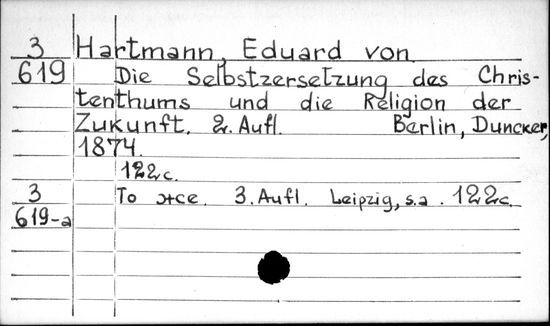 3 Hartmann, Eduard von
619 Die Selbstzersetzung des Chris-
tenthums und die Religion der
Zukunft. 2. Aufl. Berlin, Duncker,
1874.
122c.
3 То же. 3. Aufl. Leipzig, s.a. 122c.
619-a